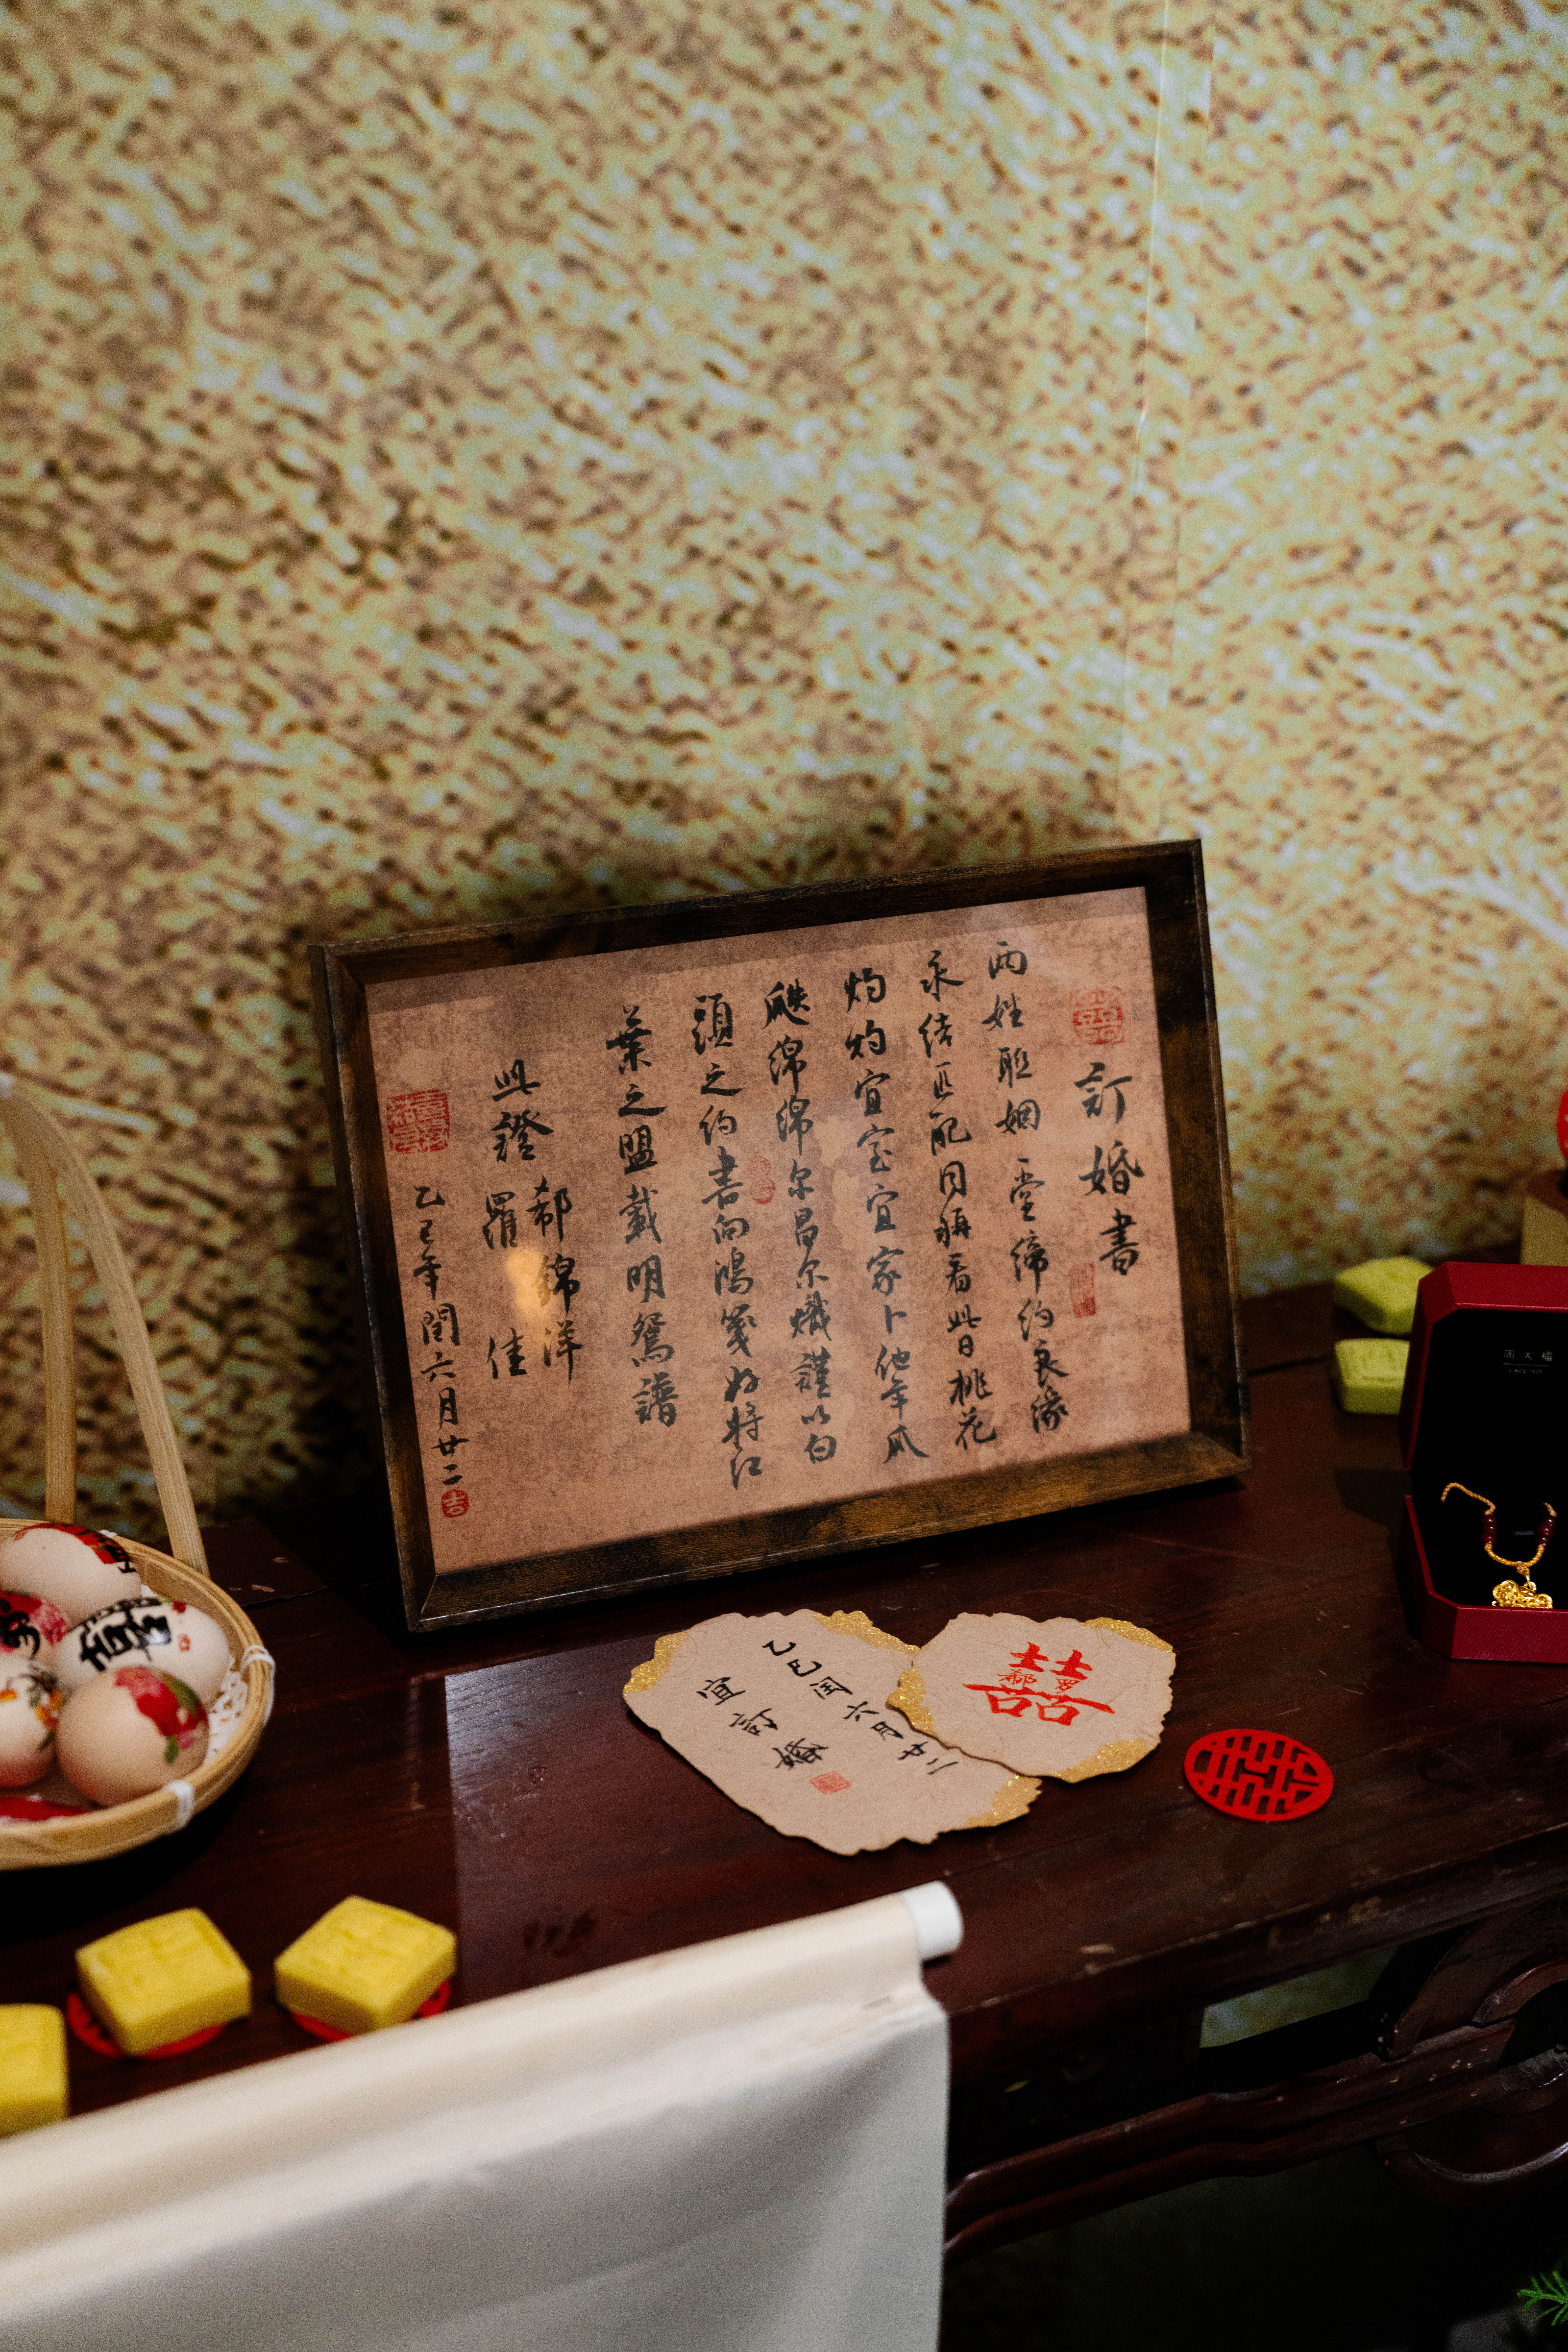 訂婚書
兩姓聯姻一堂締約良緣
永结匹配同稱看此日桃花
灼灼宜室宜家卜他年瓜
瓞绵绵尔昌尔熾謹以白
頭之约書向鴻箋好將红
葉之盟載明鴛譜
此證
郗錦洋
羅佳
乙巳年閏六月廿二
吉
乙巳闰六月廿二
宜訂婚
囍
郗 罗
周大福
囍